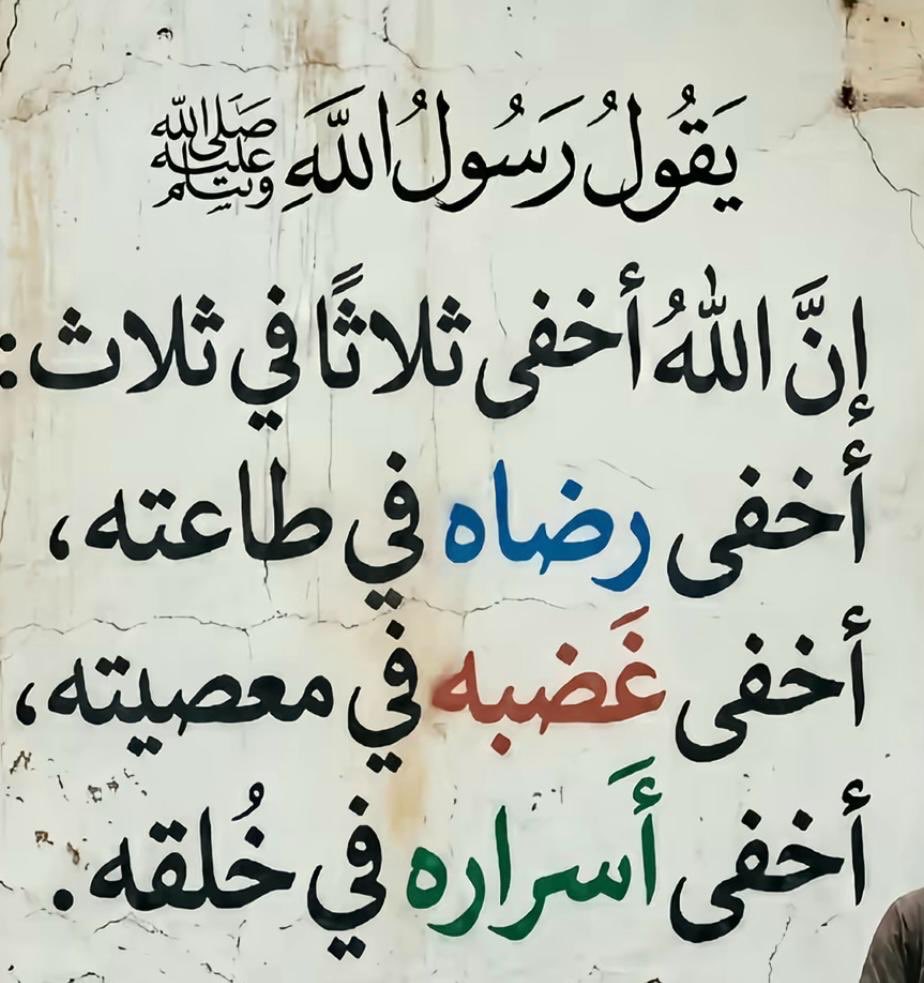 يَقُولُ رَسُولُ اللَّهِ صَلَّى اللّٰه عليه وسلم
إنَّ اللهُ أخفى ثلاثًا في ثلاث:
أخفى رضاه في طاعته،
أخفى غَضبه في معصيته،
أخفى أَسراره في خُلقه.